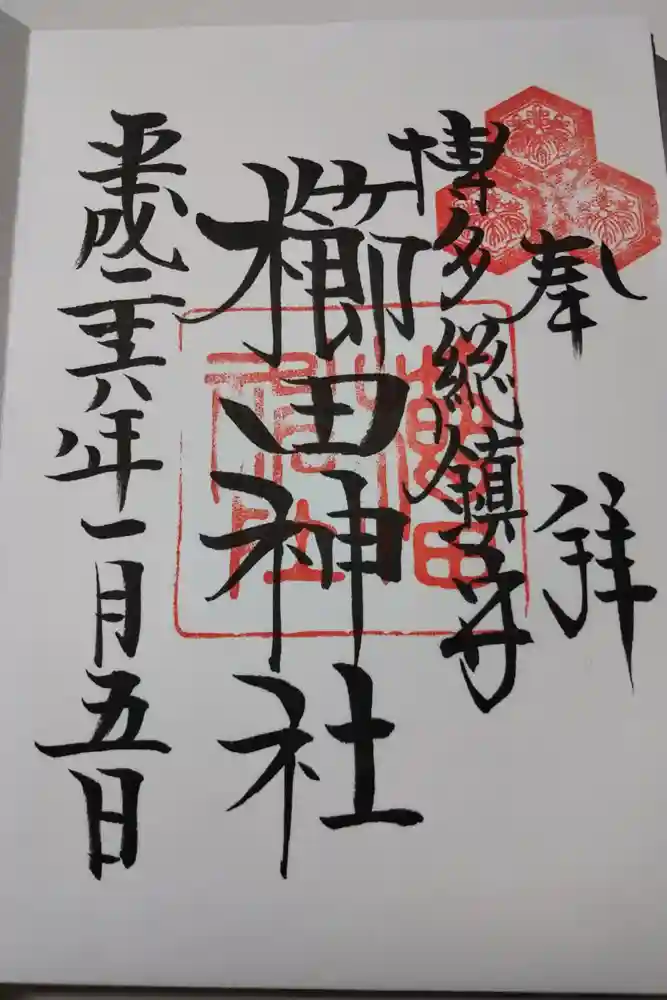 奉拝
博多総鎮守
櫛田神社
平成二十六年一月五日
櫛田
神社